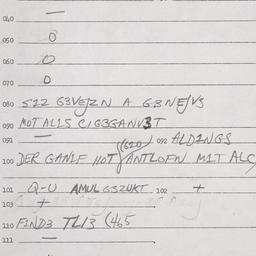 040 —
050 0
060 0
070 0
080 S12 G3VEJZN A G3NEJVS
090 MOT ALLS CIG3GANV3T
091 — 092 ALDINGS
100 DER GANIF HOT (620) ANTLOFN MIT ALC
101 Q-U AMUL G3ZUKT 102 +
103 +
110 FIND3 TLI3 (465
111 —